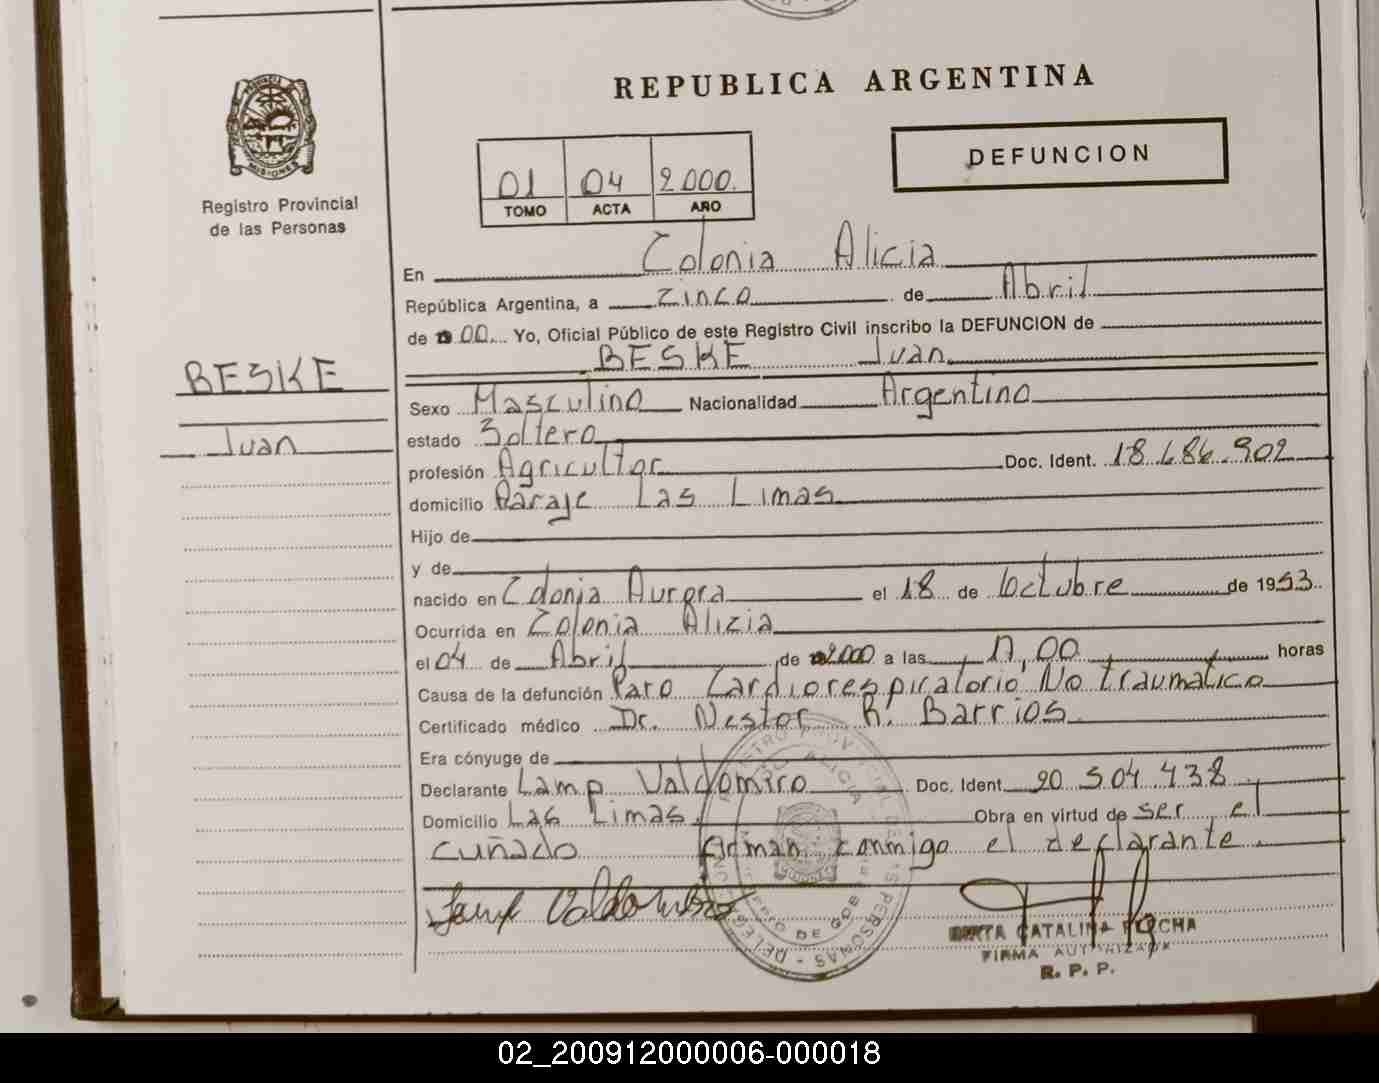 REPUBLICA ARGENTINA
DEFUNCION
MISIONES
Registro Provincial
de las Personas
01 04 2000
TOMO ACTA AÑO
En Colonia Alicia
República Argentina, a Cinco de Abril
de 00 Yo, Oficial Público de este Registro Civil inscribo la DEFUNCION de
BESKE Juan
BESKE
Juan
Sexo Masculino Nacionalidad Argentino
estado Soltero
profesión Agricultor Doc. Ident. 18.686.902
domicilio Paraje Las Limas
Hijo de
y de
nacido en Colonia Aurora el 18 de Octubre de 1953
Ocurrida en Colonia Alicia
el 04 de Abril de 2000 a las 17,00 horas
Causa de la defunción Paro Cardiorespiratorio No traumatico
Certificado médico Dr. Nestor R. Barrios
Era cónyuge de
Declarante Lamp Valdomiro Doc. Ident. 20.504.438
Domicilio Las Limas. Obra en virtud de ser el
cuñado Firman conmigo el declarante.
Lamp Valdomiro
CATALINA ROCHA
FIRMA AUTORIZADA
R. P. P.
02_200912000006-000018